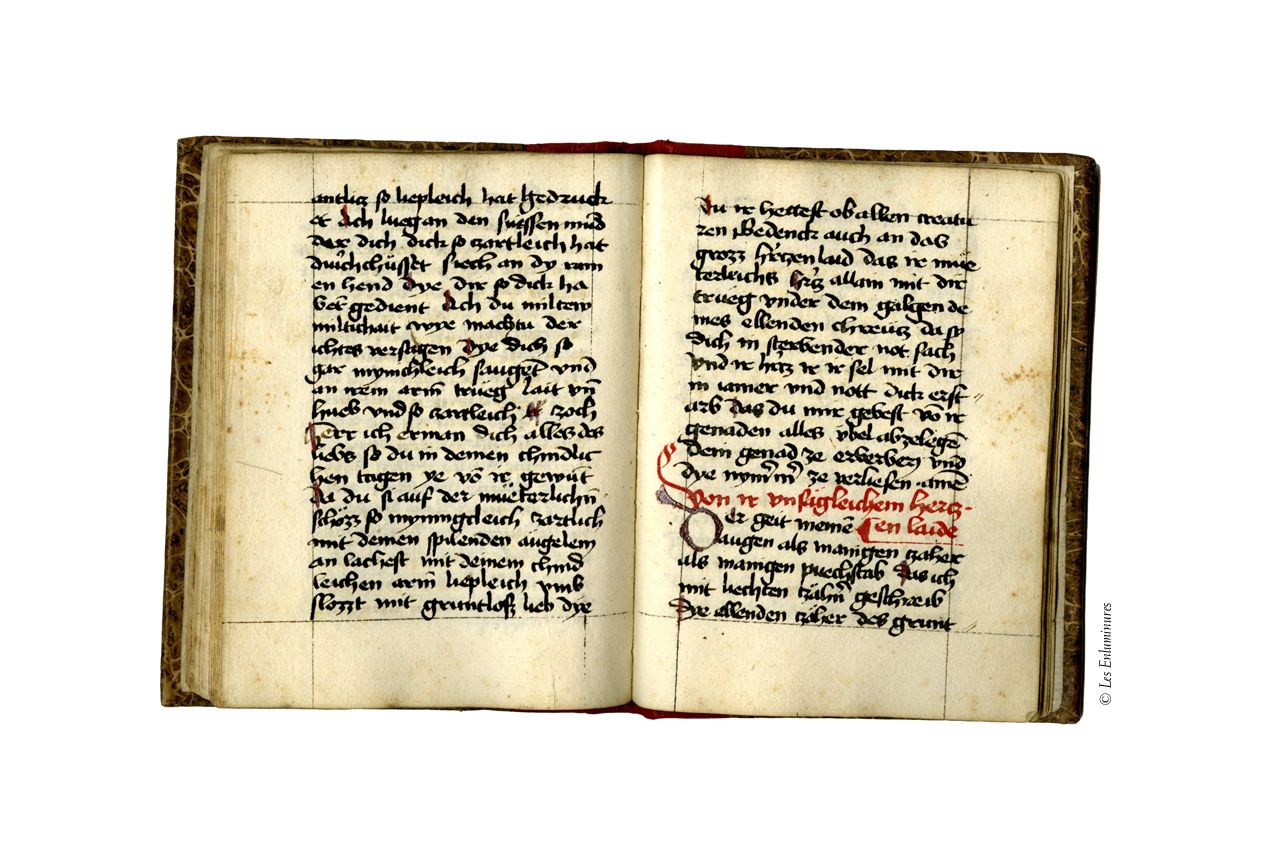 antlicz so liepleich hat gedruck
et Ach lueg an den suessen mūd
der dich dick so zartleich hat
durchchüsset siech an dy ram
en hend dye dir so dick ha
bet gedient Ach du miltew
miltichait wye machtu der
ichtes versagen dye dich so
gar mynichleich saugt vnd
an irem arm trueg lait vn̄
hueb vnd so zartleich zoch
herr ich erman dich alles des
liebs so du in deinen chindlic
hen tagen ye vō ir gewūt
da du si auf der müeterlichn̄
schozz so mynnigcleich zartlich
mit deinen spilenden äugelein
an lachest mit deinem chind
leichen arm̄ liepleich vmb
slozzt mit gruntlosz lieb dye
du ir hettest ob allen creatu
ren Bedenck auch an das
grozz herzenlaid das ir müe
terleichs hercz allain mit dir
trueg vnder dem galgen de
ines ellenden chreucz da sy
dich in sterbender not sach
vnd ir hercz ir ir sel mit dir
in iamer vnd nott dick erst
arb das du mir gebest vō ir
genaden alles vbel abzelegē
dein genad ze erberben vnd
dye nymm̄ ze verliesen amē
Von ir vnsägleichem hercz
en laide
Wer geit meinē
augen als manigen zaher
als manigen puechstab das ich
mit liechten zähn̄ geschreib
dye ellenden zäher des grunt
© Les Enluminures